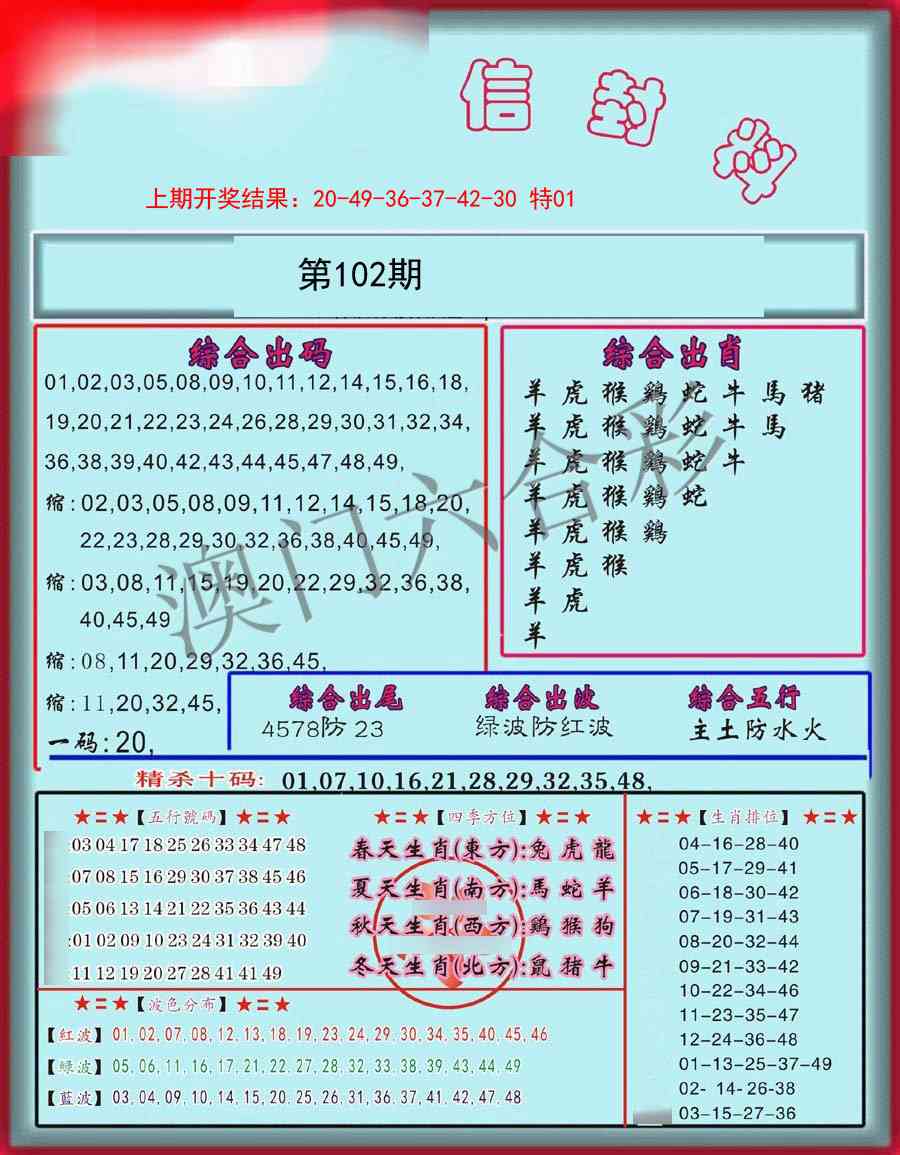 信封料
上期开奖结果：20-49-36-37-42-30 特01
第102期
综合出码
01,02,03,05,08,09,10,11,12,14,15,16,18,
19,20,21,22,23,24,26,28,29,30,31,32,34,
36,38,39,40,42,43,44,45,47,48,49,
缩:02,03,05,08,09,11,12,14,15,18,20,
22,23,28,29,30,32,36,38,40,45,49,
缩:03,08,11,15,19,20,22,29,32,36,38,
40,45,49
缩:08,11,20,29,32,36,45,
缩:11,20,32,45,
一码:20,
综合出肖
羊 虎 猴 鷄 蛇 牛 馬 猪
羊 虎 猴 鷄 蛇 牛 馬
羊 虎 猴 鷄 蛇 牛
羊 虎 猴 鷄 蛇
羊 虎 猴 鷄
羊 虎 猴
羊 虎
羊
澳门六合彩
综合出尾
4578防 23
综合出波
绿波防红波
综合五行
主土防水火
精杀十码: 01,07,10,16,21,28,29,32,35,48,
★=★【五行號码】★=★
:03 04 17 18 25 26 33 34 47 48
:07 08 15 16 29 30 37 38 45 46
:05 06 13 14 21 22 35 36 43 44
:01 02 09 10 23 24 31 32 39 40
11 12 19 20 27 28 41 41 49
★=★【四季方位】★=★
春天生肖(東方):兔 虎 龍
夏天生肖(南方):馬 蛇 羊
秋天生肖(西方):鷄 猴 狗
冬天生肖(北方):鼠 猪 牛
★=★【波色分布】★=★
【紅波】01,02,07,08,12,13,18,19,23,24,29,30,34,35,40,45,46
【緑波】05,06,11,16,17,21,22,27,28,32,33,38,39,43,44,49
【藍波】03,04,09,10,14,15,20,25,26,31,36,37,41,42,47,48
★=★【生肖排位】★=★
04-16-28-40
05-17-29-41
06-18-30-42
07-19-31-43
08-20-32-44
09-21-33-42
10-22-34-46
11-23-35-47
12-24-36-48
01-13-25-37-49
02- 14-26-38
03-15-27-36